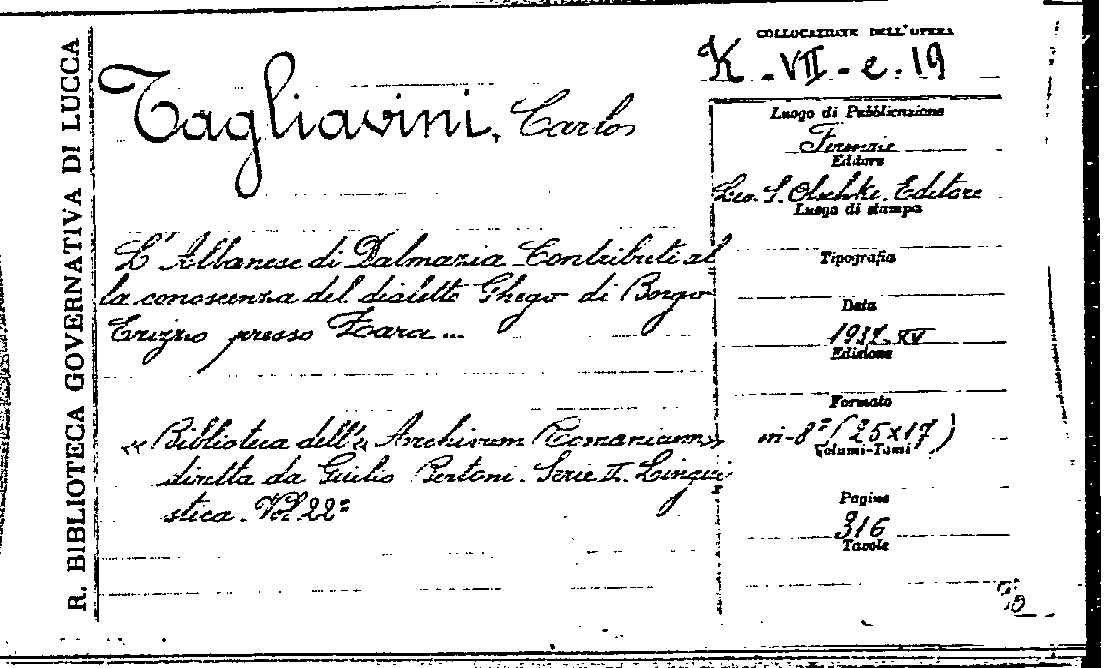 R. BIBLIOTECA GOVERNATIVA DI LUCCA
COLLOCAZIONE DELL'OPERA
K - VII - e. 19
Tagliavini, Carlo
Luogo di Pubblicazione
Firenze
Editore
Leo. S. Olschki. Editore
Luogo di stampa
L'Albanese di Dalmazia Contributi al
la conoscenza del dialetto Ghego di Borgo
Erizzo presso Zara...
Tipografia
Data
1937-XV
Edizione
Formato
in-8º (25x17)
Volumi-Tomi
Biblioteca dell'« Archivum Romanicum»
diretta da Giulio Bertoni. Serie II. Lingui
stica. Vol. 22º
Pagine
316
Tavole